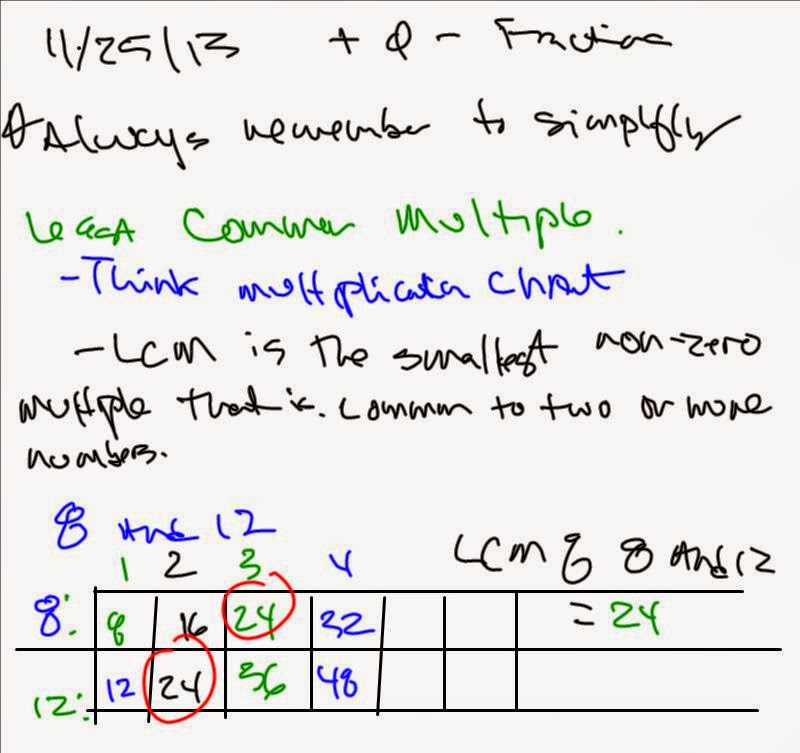 11/25/13 + & - Fractions
*Always remember to simplify
Least Common Multiple.
-Think multiplication chart
-LCM is the smallest non-zero
multiple that is common to two or more
numbers.
8 and 12
1 2 3 4
LCM of 8 and 12
8: 8 16 24 32
= 24
12: 12 24 36 48